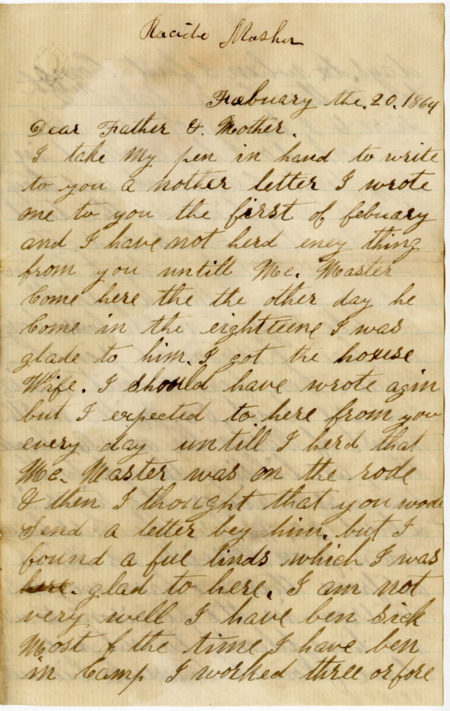 Racide Mosher
Febuary the. 20. 1864
Dear Father & Mother.
I take My pen in hand to write
to you a nother letter I wrote
one to you the first of febuary
and I have not herd eney thing
from you untill Mc. Master
Come here the the other day he
Come in the eighteene I was
glade to him. I got the house
Wife. I should have wrote agin
but I expected to here from you
every day untill I herd that
Mc. Master was on the rode
& then I thought that you wode
Send a letter bey him. but I
found a fue linds which I was
here. glad to here. I am not
very well I have ben sick
Most of the time I have ben
in Camp I worked three or fore